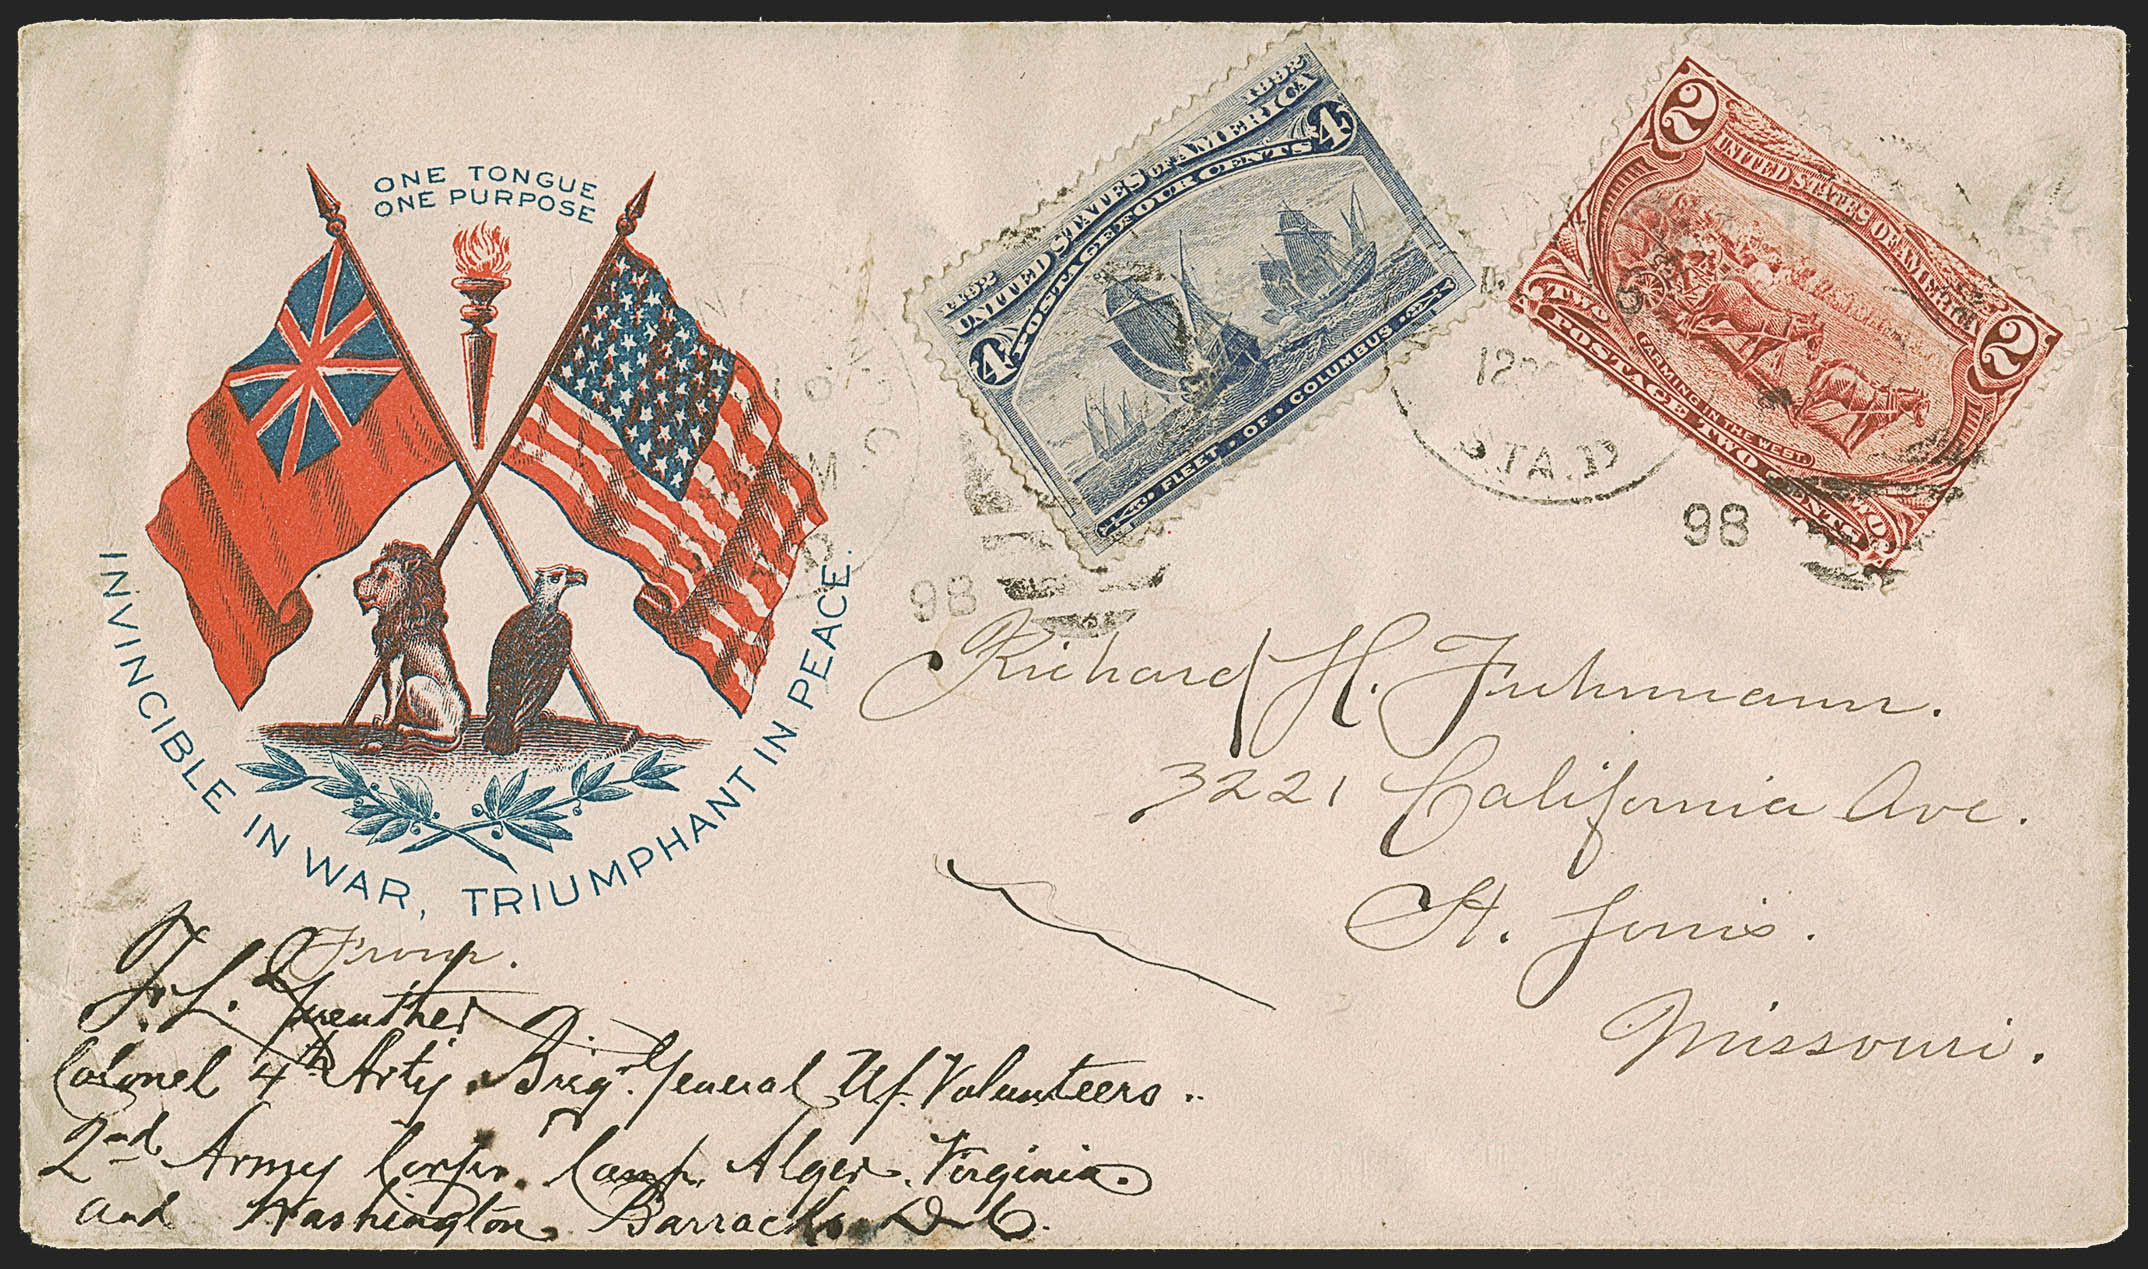 ONE TONGUE
ONE PURPOSE
INVINCIBLE IN WAR, TRIUMPHANT IN PEACE.
1492 1892
UNITED STATES OF AMERICA
POSTAGE FOUR CENTS
4 4
FLEET OF COLUMBUS
2 2
UNITED STATES OF AMERICA
FARMING IN THE WEST.
TWO TWO
POSTAGE TWO CENTS
12
STA.
98
98
Richard H. Fuhrmann.
3221 California Ave.
St. Louis.
Missouri.
From.
F. L. Guenther
Colonel 4th Arty. Brig. General U.S. Volunteers..
2nd Army Corps. Camp Alger. Virginia.
and Washington Barracks D C.